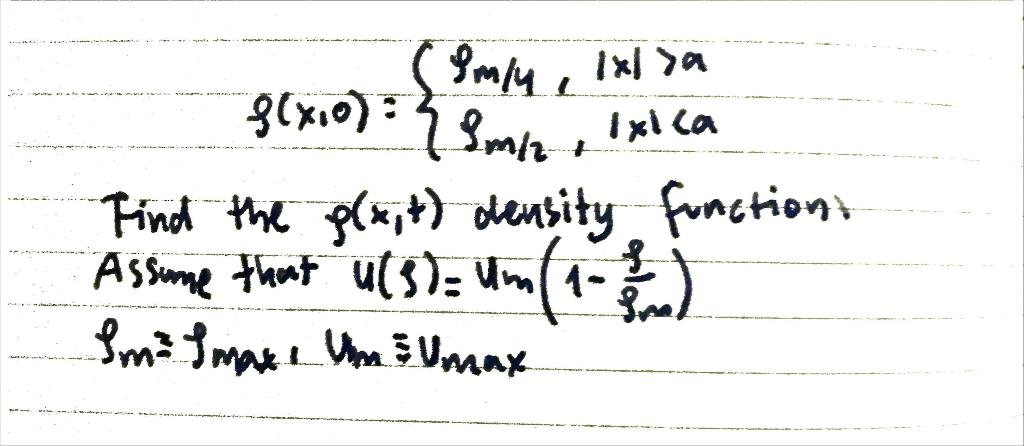 ρ(x,0) = { ρm/4 , |x| > a
ρm/2 , |x| < a
Find the ρ(x,t) density function.
Assume that u(ρ) = um(1 - ρ/ρm)
ρm ≡ ρmax, Um ≡ Umax